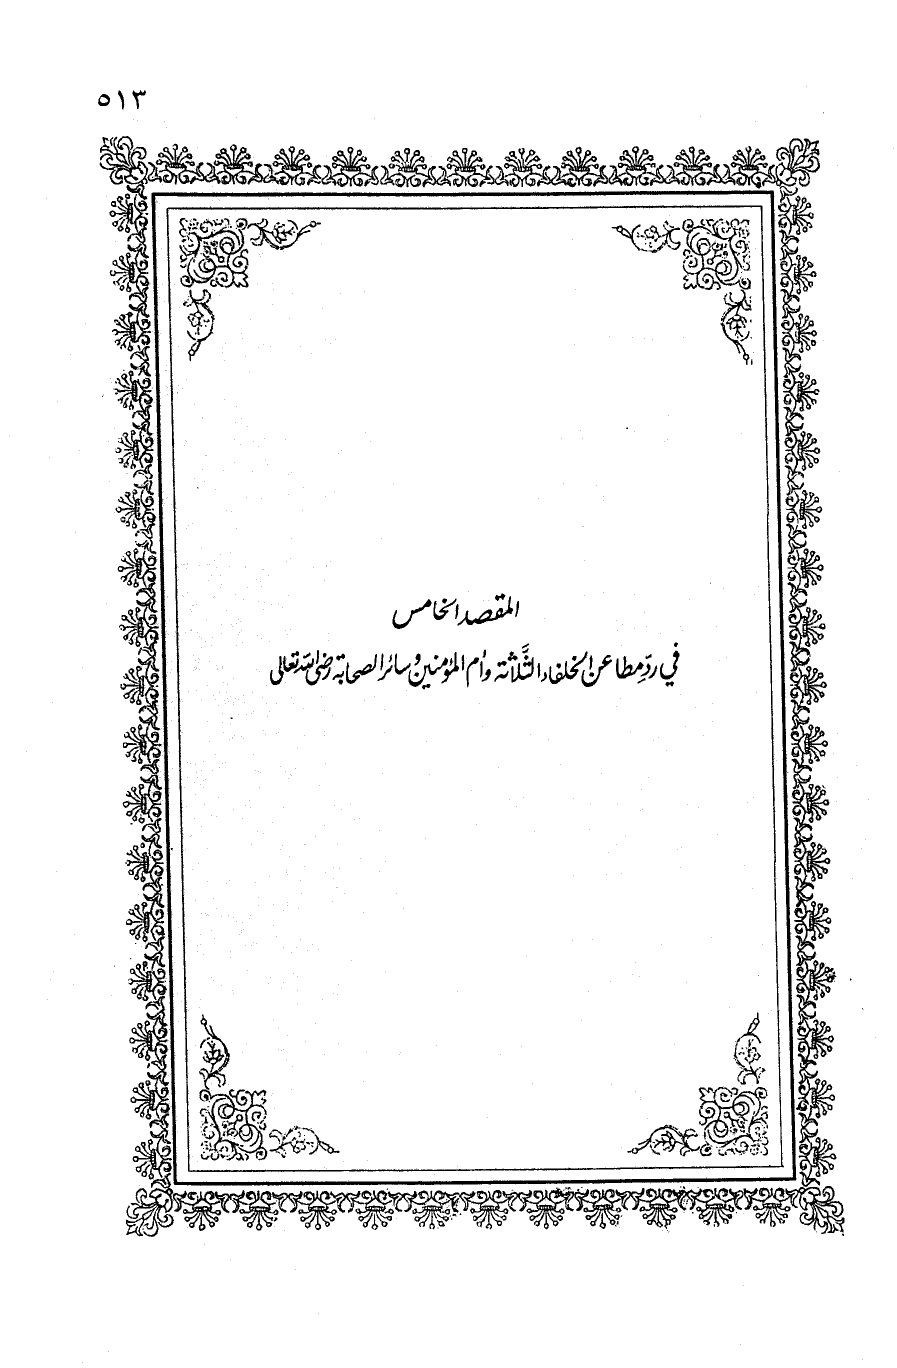 ٥١٣
المقصد الخامس
في ردِّ مطاعن الخلفاء الثَّلاثة وأم المؤمنين وسائر الصحابة رضي الله تعالى